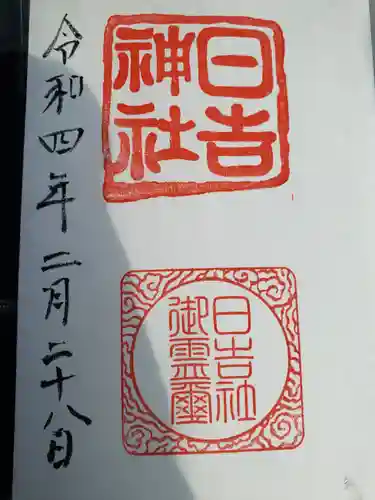 日吉
神社
日吉社
御霊璽
令和四年二月二十八日